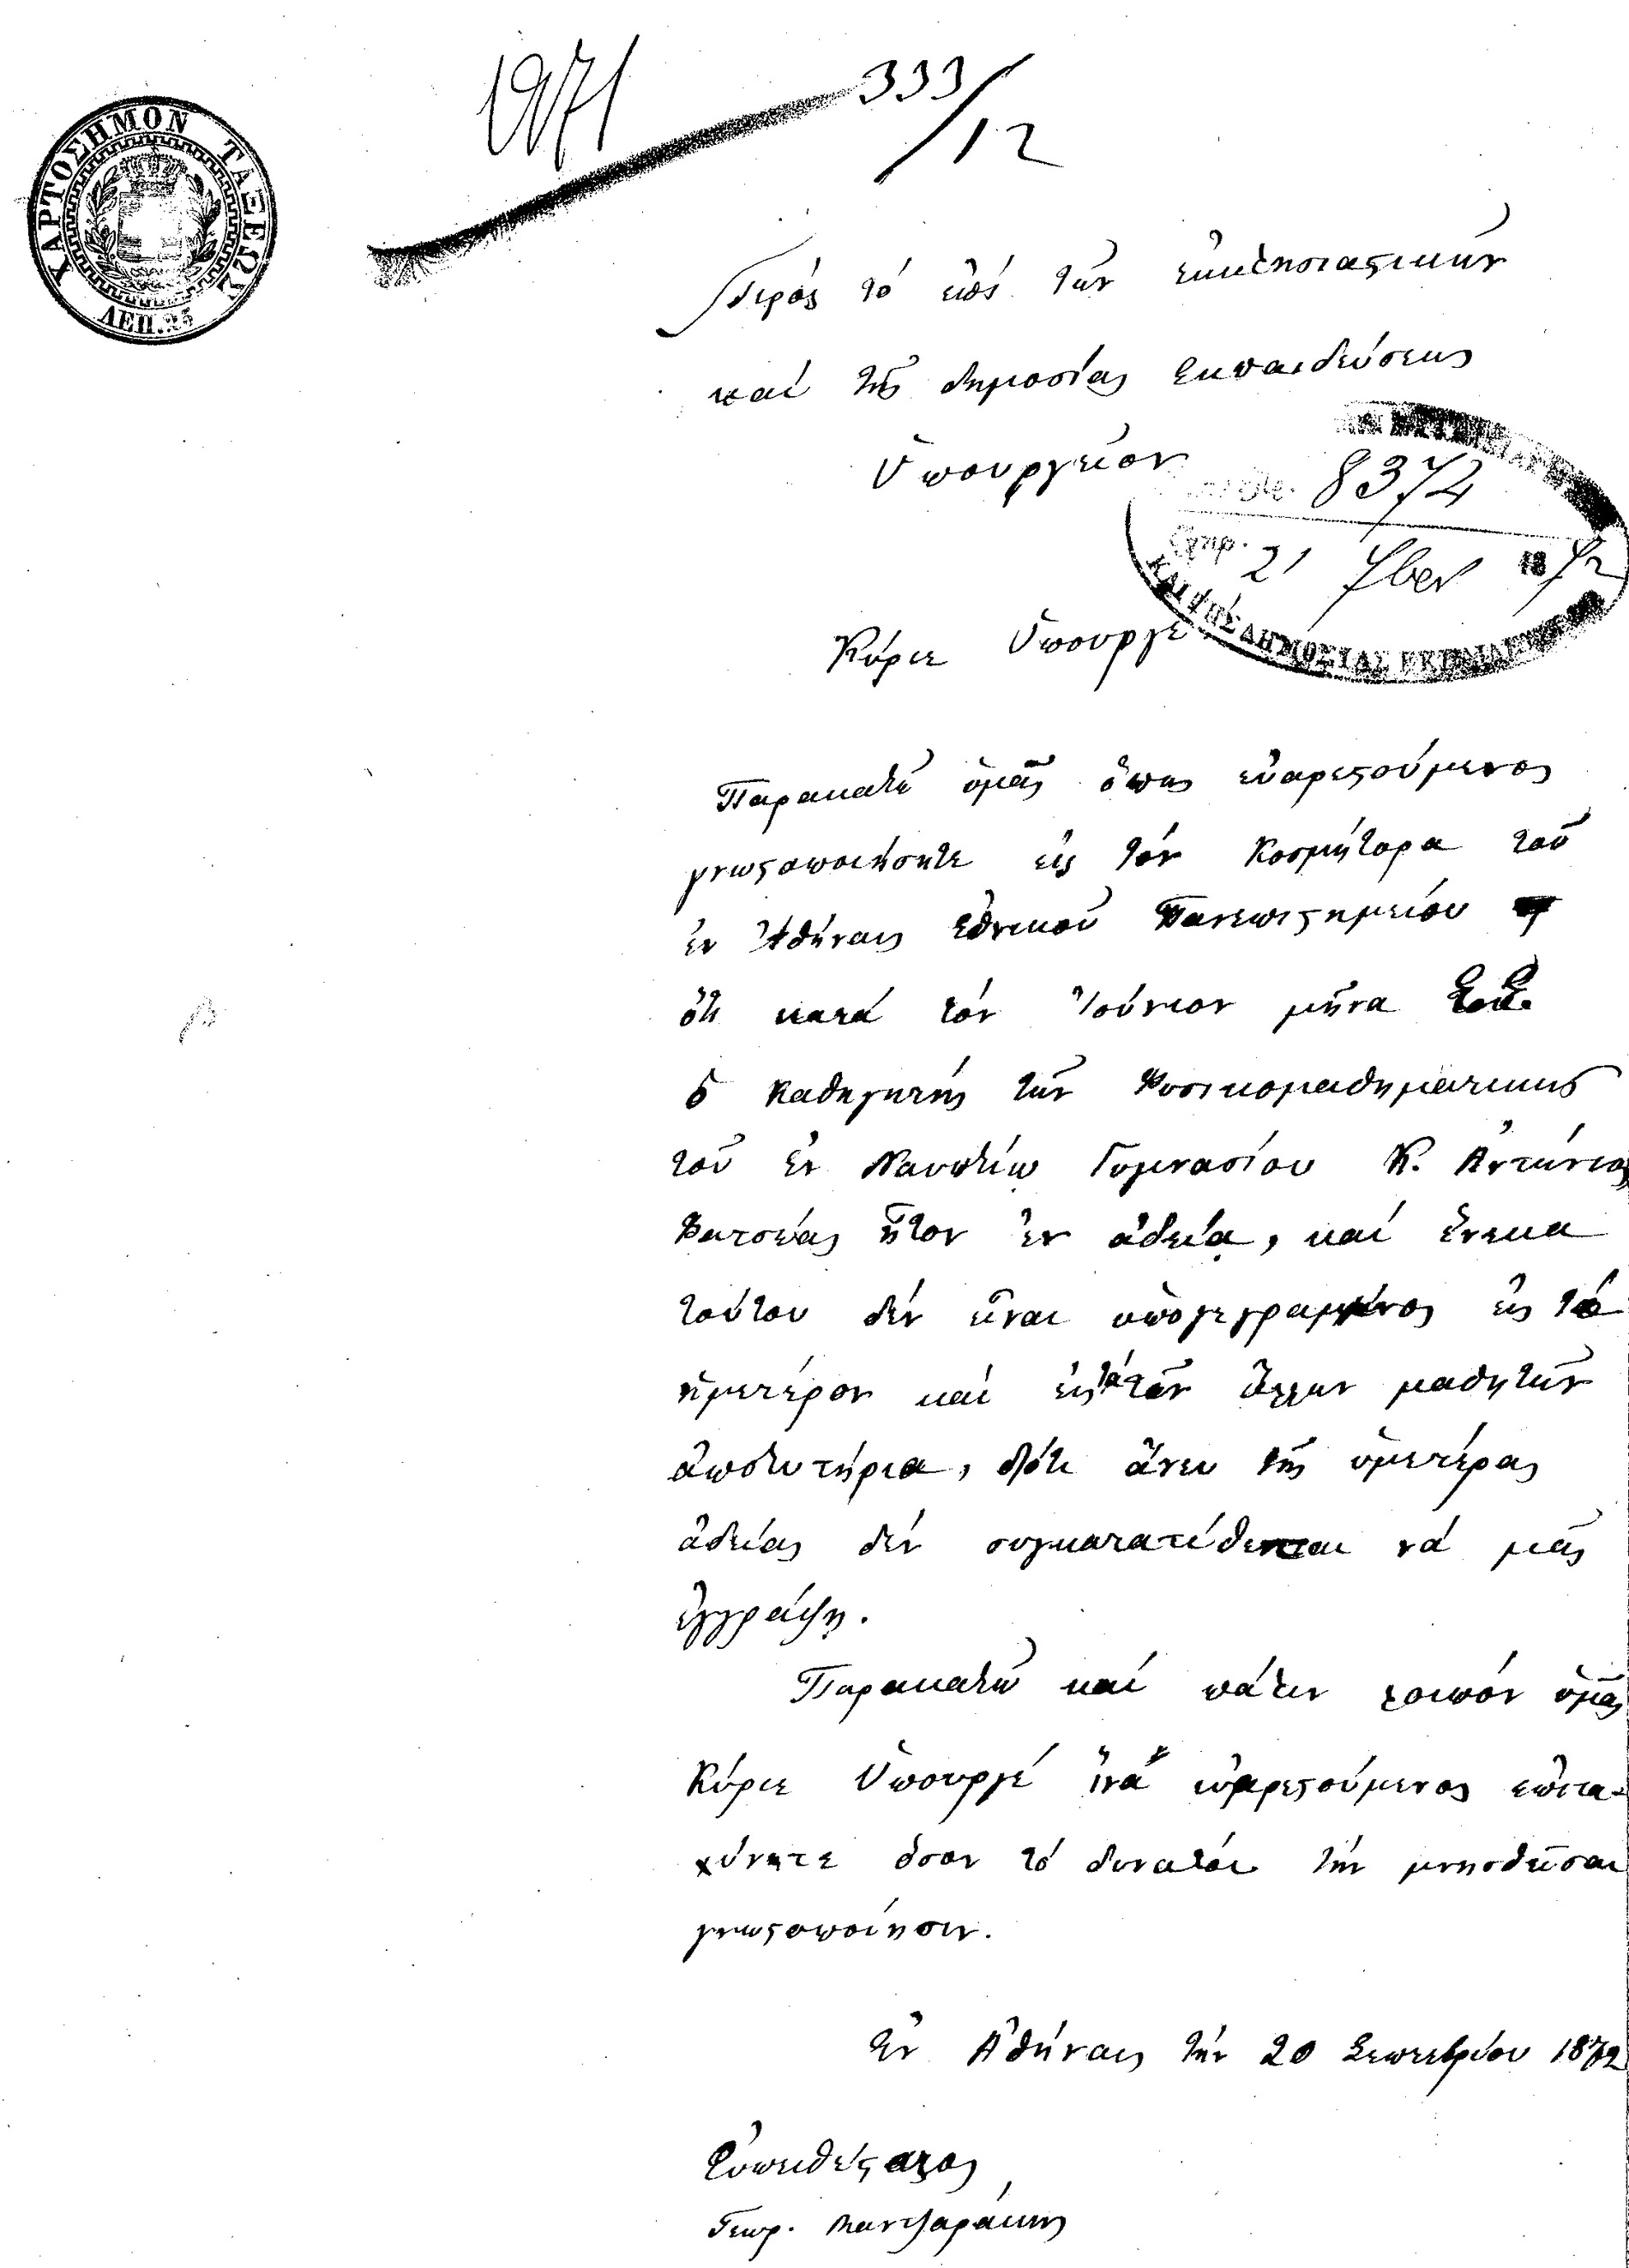 1971 333/12
ΧΑΡΤΟΣΗΜΟΝ ΤΑΞΕΩΣ
ΛΕΠ. 25
Πρὸς τὸ ἐπὶ τῶν ἐκκλησιαστικῶν
καὶ τῆς δημοσίας ἐκπαιδεύσεως
Ὑπουργεῖον
8372
21 7βερ 1872
ΚΑΙ ΤΗΣ ΔΗΜΟΣΙΑΣ ΕΚΠΑΙΔΕΥΣΕΩΣ
Κύριε Ὑπουργέ
Παρακαλῶ ὑμᾶς ὅπως εὐαρεστούμενος
γνωστοποιήσητε εἰς τὸν Κοσμήτορα τοῦ
ἐν Ἀθήναις Ἐθνικοῦ Πανεπιστημείου
ὅτι κατὰ τὸν Ἰούνιον μῆνα
ὁ Καθηγητὴς τῶν Φυσικομαθηματικῶν
τοῦ ἐν Ναυπλίῳ Γυμνασίου Κ. Ἀντώνιος
Φατσέας ἦτον ἐν ἀδείᾳ, καὶ ἕνεκα
τούτου δὲν εἶναι ὑπογεγραμμένος εἰς τὸ
ἡμετέρον καὶ εἰς τὰ τῶν ἄλλων μαθητῶν
ἀπολυτήρια, διότι ἄνευ τῆς ὑμετέρας
ἀδείας δὲν συγκατατίθεται νὰ μᾶς
ἐγγράψῃ.
Παρακαλῶ καὶ πάλιν λοιπὸν ὑμᾶς
Κύριε Ὑπουργέ ἵνα εὐαρεστούμενος ἐπιτα-
χύνητε ὅσον τὸ δυνατόν τὴν μνησθεῖσαν
γνωστοποίησιν.
Ἐν Ἀθήναις τὴν 20 Σεπτεβρίου 1872
Εὐπειθέστατος
Γεωρ. Μαντζαράκης